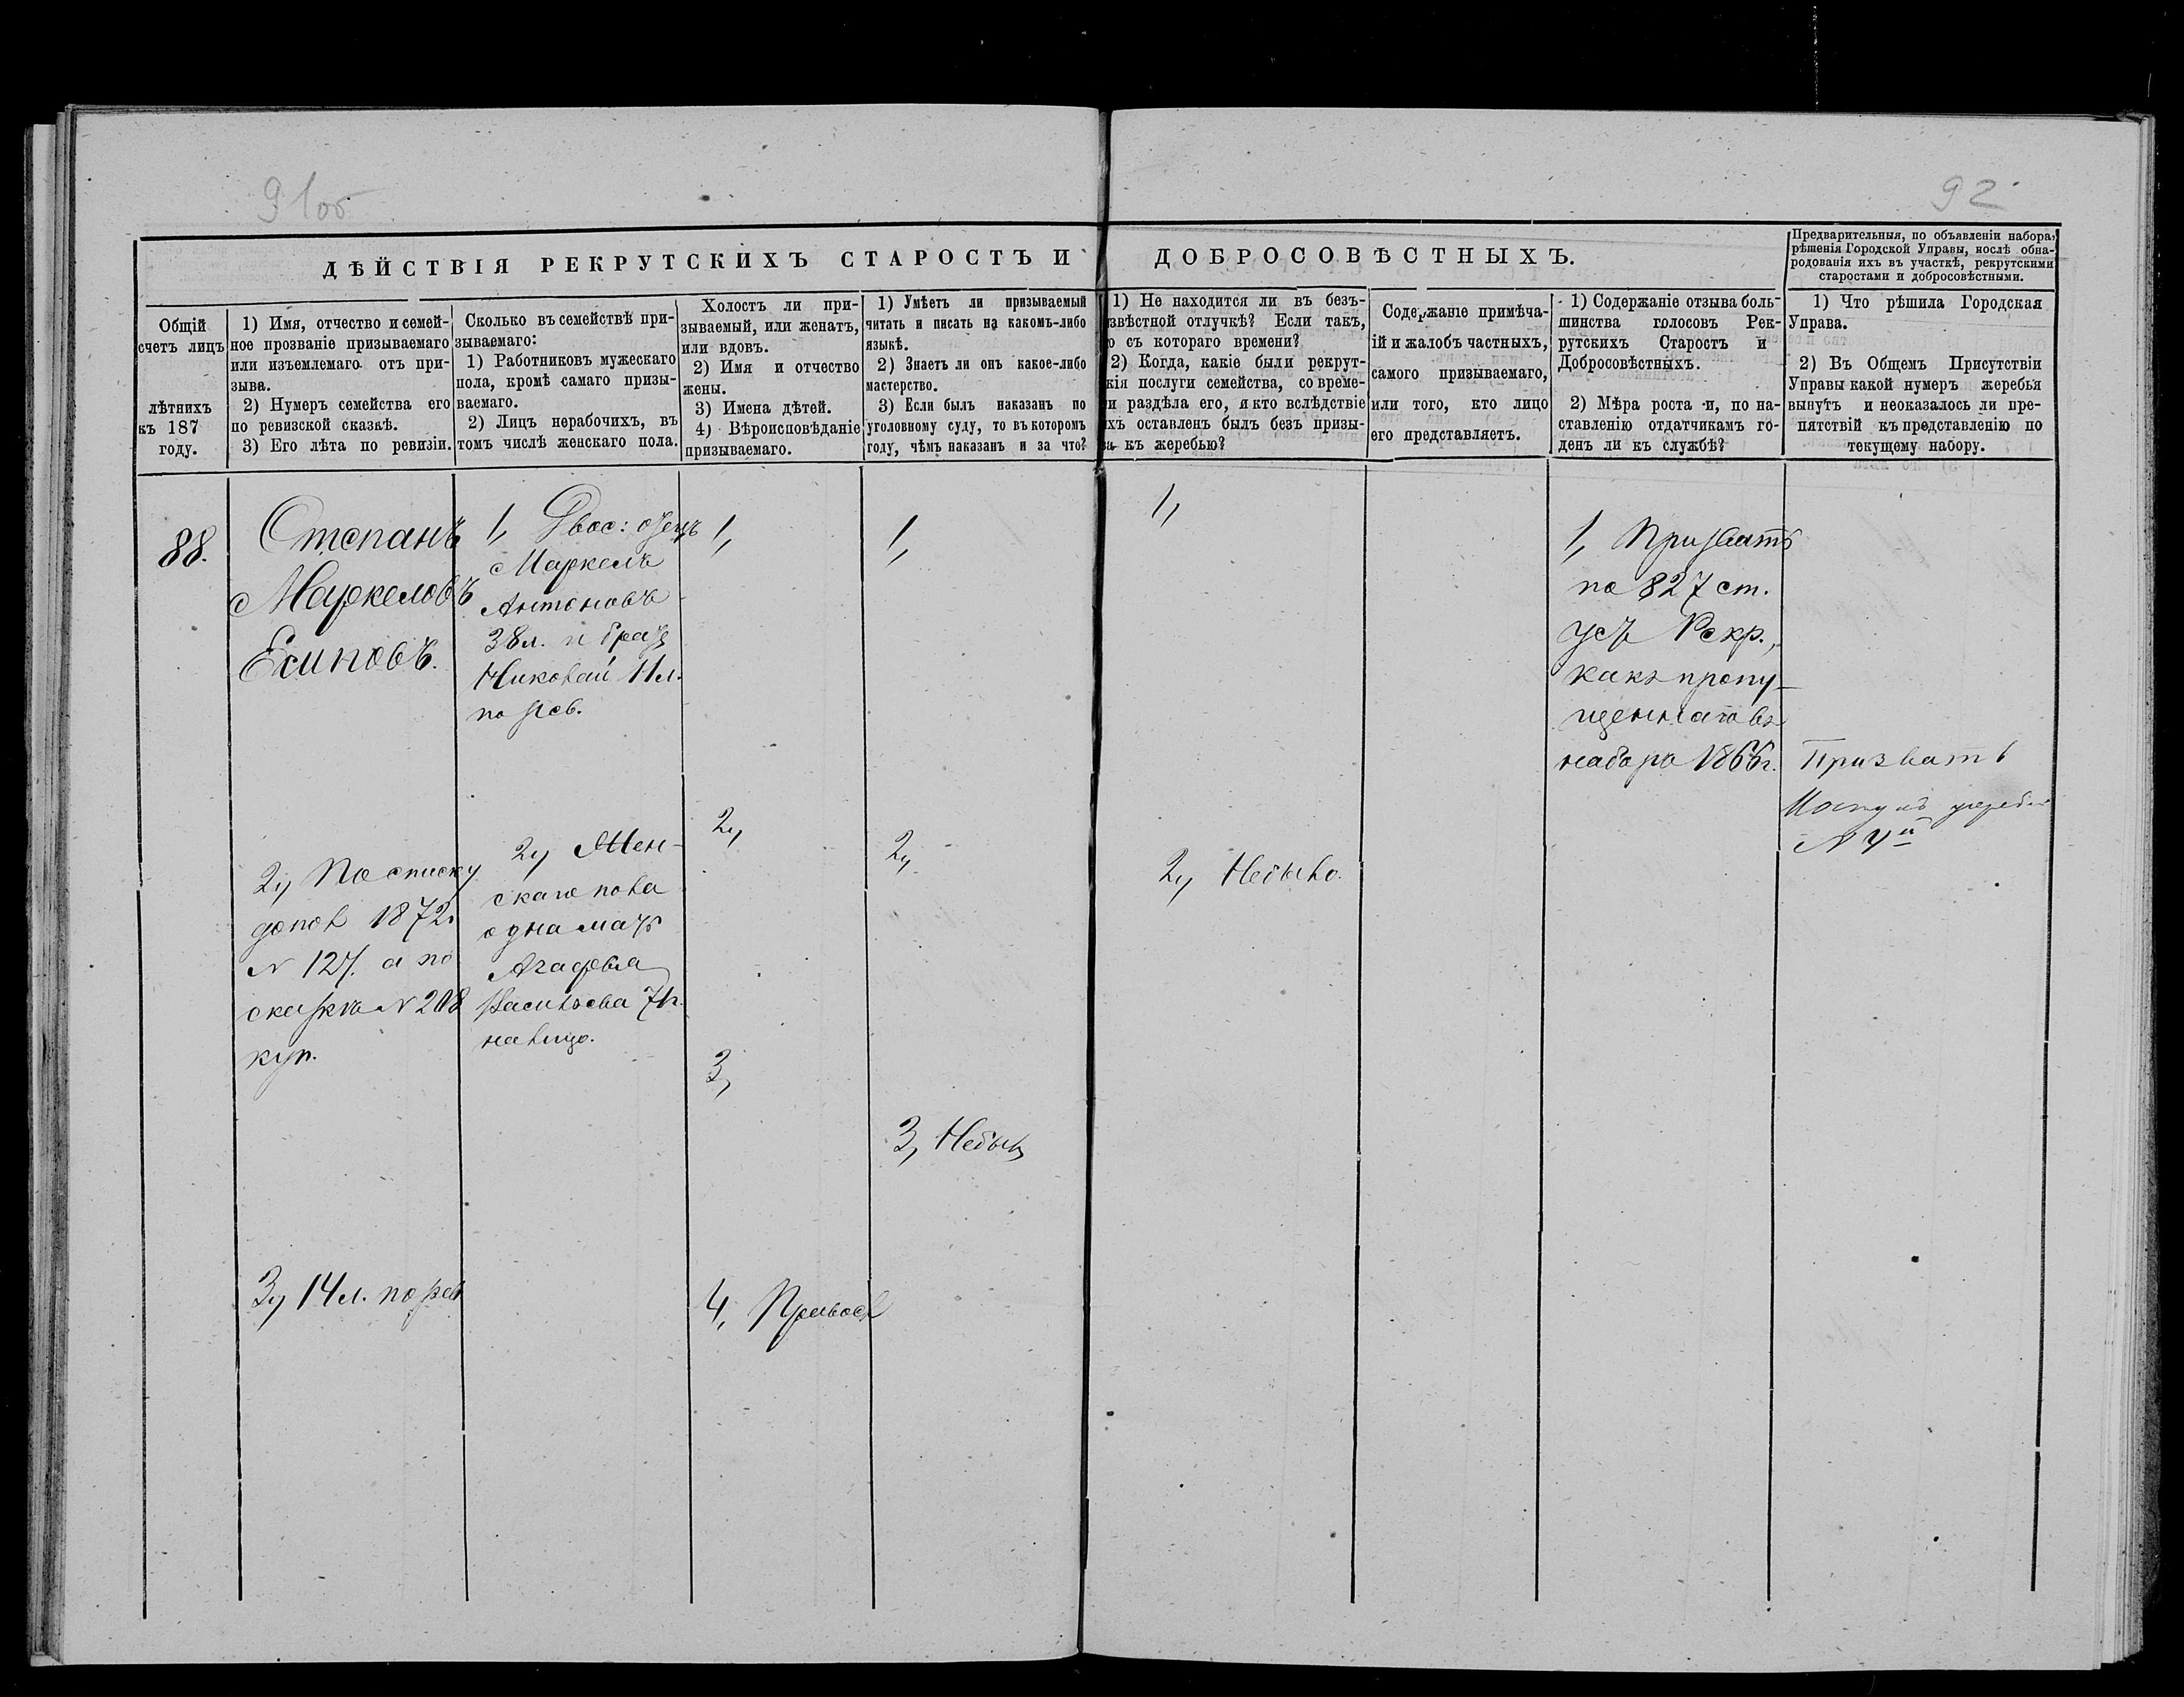 91об
92
ДѢЙСТВІЯ РЕКРУТСКИХЪ СТАРОСТЪ И ДОБРОСОВѢСТНЫХЪ.
Предварительныя, по объявленіи набора,
рѣшенія Городской Управы, послѣ обна-
родованія ихъ въ участкѣ, рекрутскими
старостами и добросовѣстными.
Общій
счетъ лицъ
лѣтнихъ
къ 187
году.
1) Имя, отчество и семей-
ное прозваніе призываемаго
или изъемлемаго отъ при-
зыва.
2) Нумеръ семейства его
по ревизской сказкѣ.
3) Его лѣта по ревизіи.
Сколько въ семействѣ при-
зываемаго:
1) Работниковъ мужескаго
пола, кромѣ самаго призы-
ваемаго.
2) Лицъ нерабочихъ, въ
томъ числѣ женскаго пола.
Холостъ ли при-
зываемый, или женатъ,
или вдовъ.
2) Имя и отчество
жены.
3) Имена дѣтей.
4) Вѣроисповѣданіе
призываемаго.
1) Умѣетъ ли призываемый
читать и писать на какомъ-либо
языкѣ.
2) Знаетъ ли онъ какое-либо
мастерство.
3) Если былъ наказанъ по
уголовному суду, то въ которомъ
году, чѣмъ наказанъ и за что?
1) Не находится ли въ безъ-
звѣстной отлучкѣ? Если такъ,
о съ котораго времени?
2) Когда, какіе были рекрут-
кія послуги семейства, со време-
и раздѣла его, и кто вслѣдствіе
хъ оставленъ былъ безъ призы-
ва къ жеребью?
Содержаніе примѣча-
ій и жалобъ частныхъ,
самого призываемаго,
или того, кто лицо
его представляетъ.
1) Содержаніе отзыва боль-
шинства голосовъ Рек-
рутскихъ Старостъ и
Добросовѣстныхъ.
2) Мѣра роста и, по на-
ставленію отдатчикамъ го-
денъ ли къ службѣ?
1) Что рѣшила Городская
Управа.
2) Въ Общемъ Присутствіи
Управы какой нумеръ жеребья
вынутъ и неоказалось ли пре-
пятствій къ представленію по
текущему набору.
88.
Степанъ
Маркеловъ
Есиповъ.
2, По списку
допол 1872г
N 127. а по
сказкѣ N 208
куп.
3, 14 л. по рев
1, Двое: отецъ
Маркелъ
Антоновъ
38 л. и братъ
Николай 11 л.
по рев.
2, Жен-
скаго пола
одна мать
Агафья
Васильева
на лицо.
1,
2,
3,
4, Правосл
1,
2,
3, Небылъ
1,
2, Небыло.
1, Призвать
по 827 ст.
уст Рекр.,
какъ пропу-
щеннаго въ
наборъ 1866г.
Призвать
N 4й